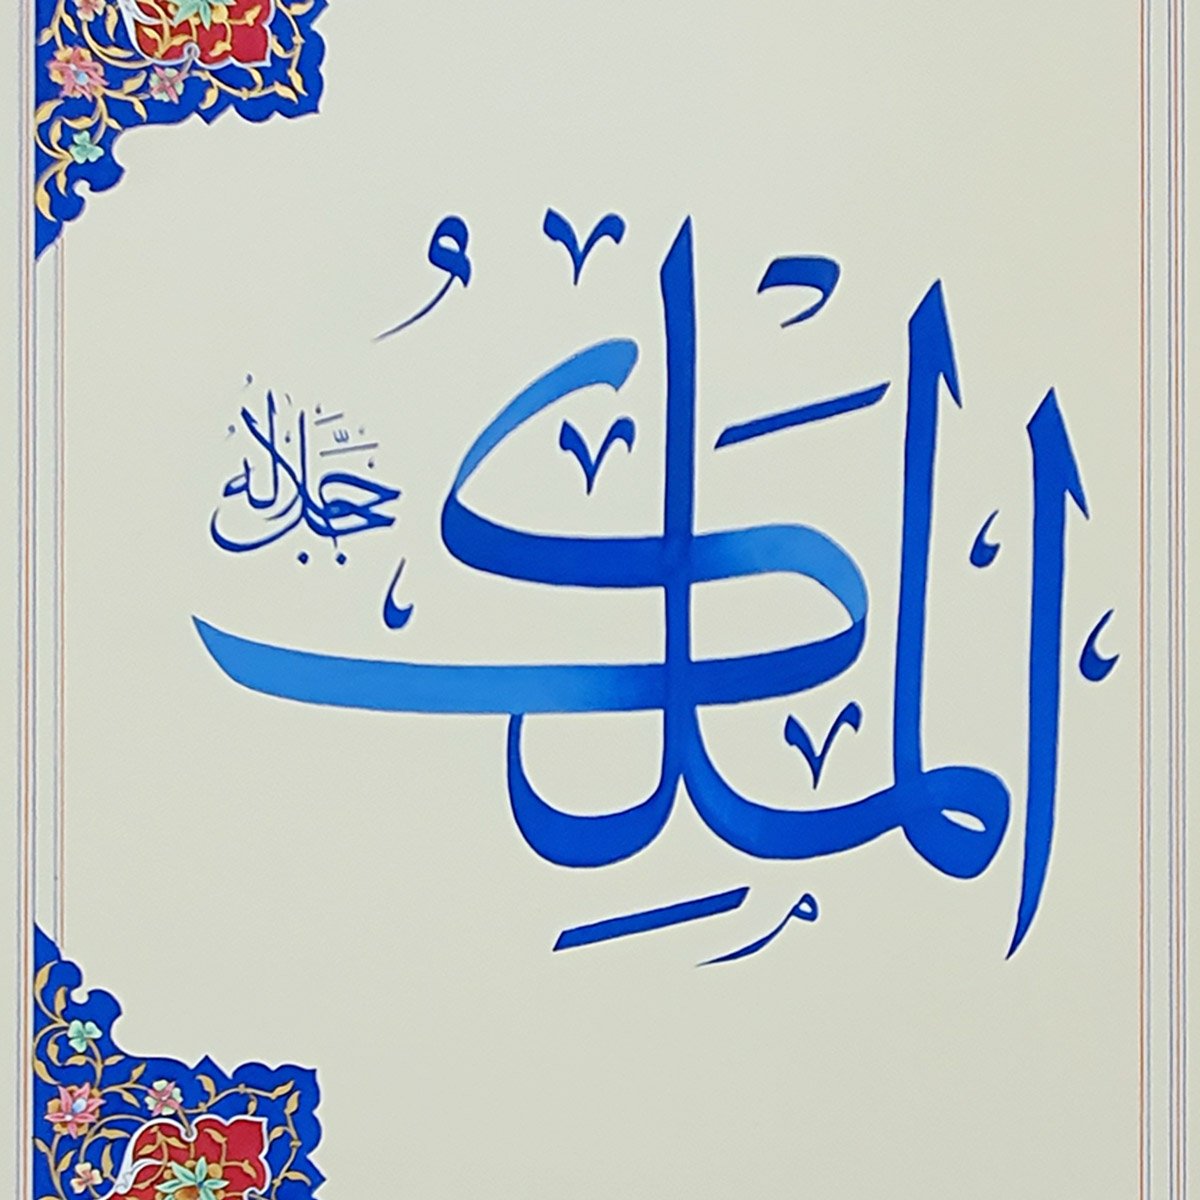 الْمَلِكُ
جَلَّ جَلَالُهُ